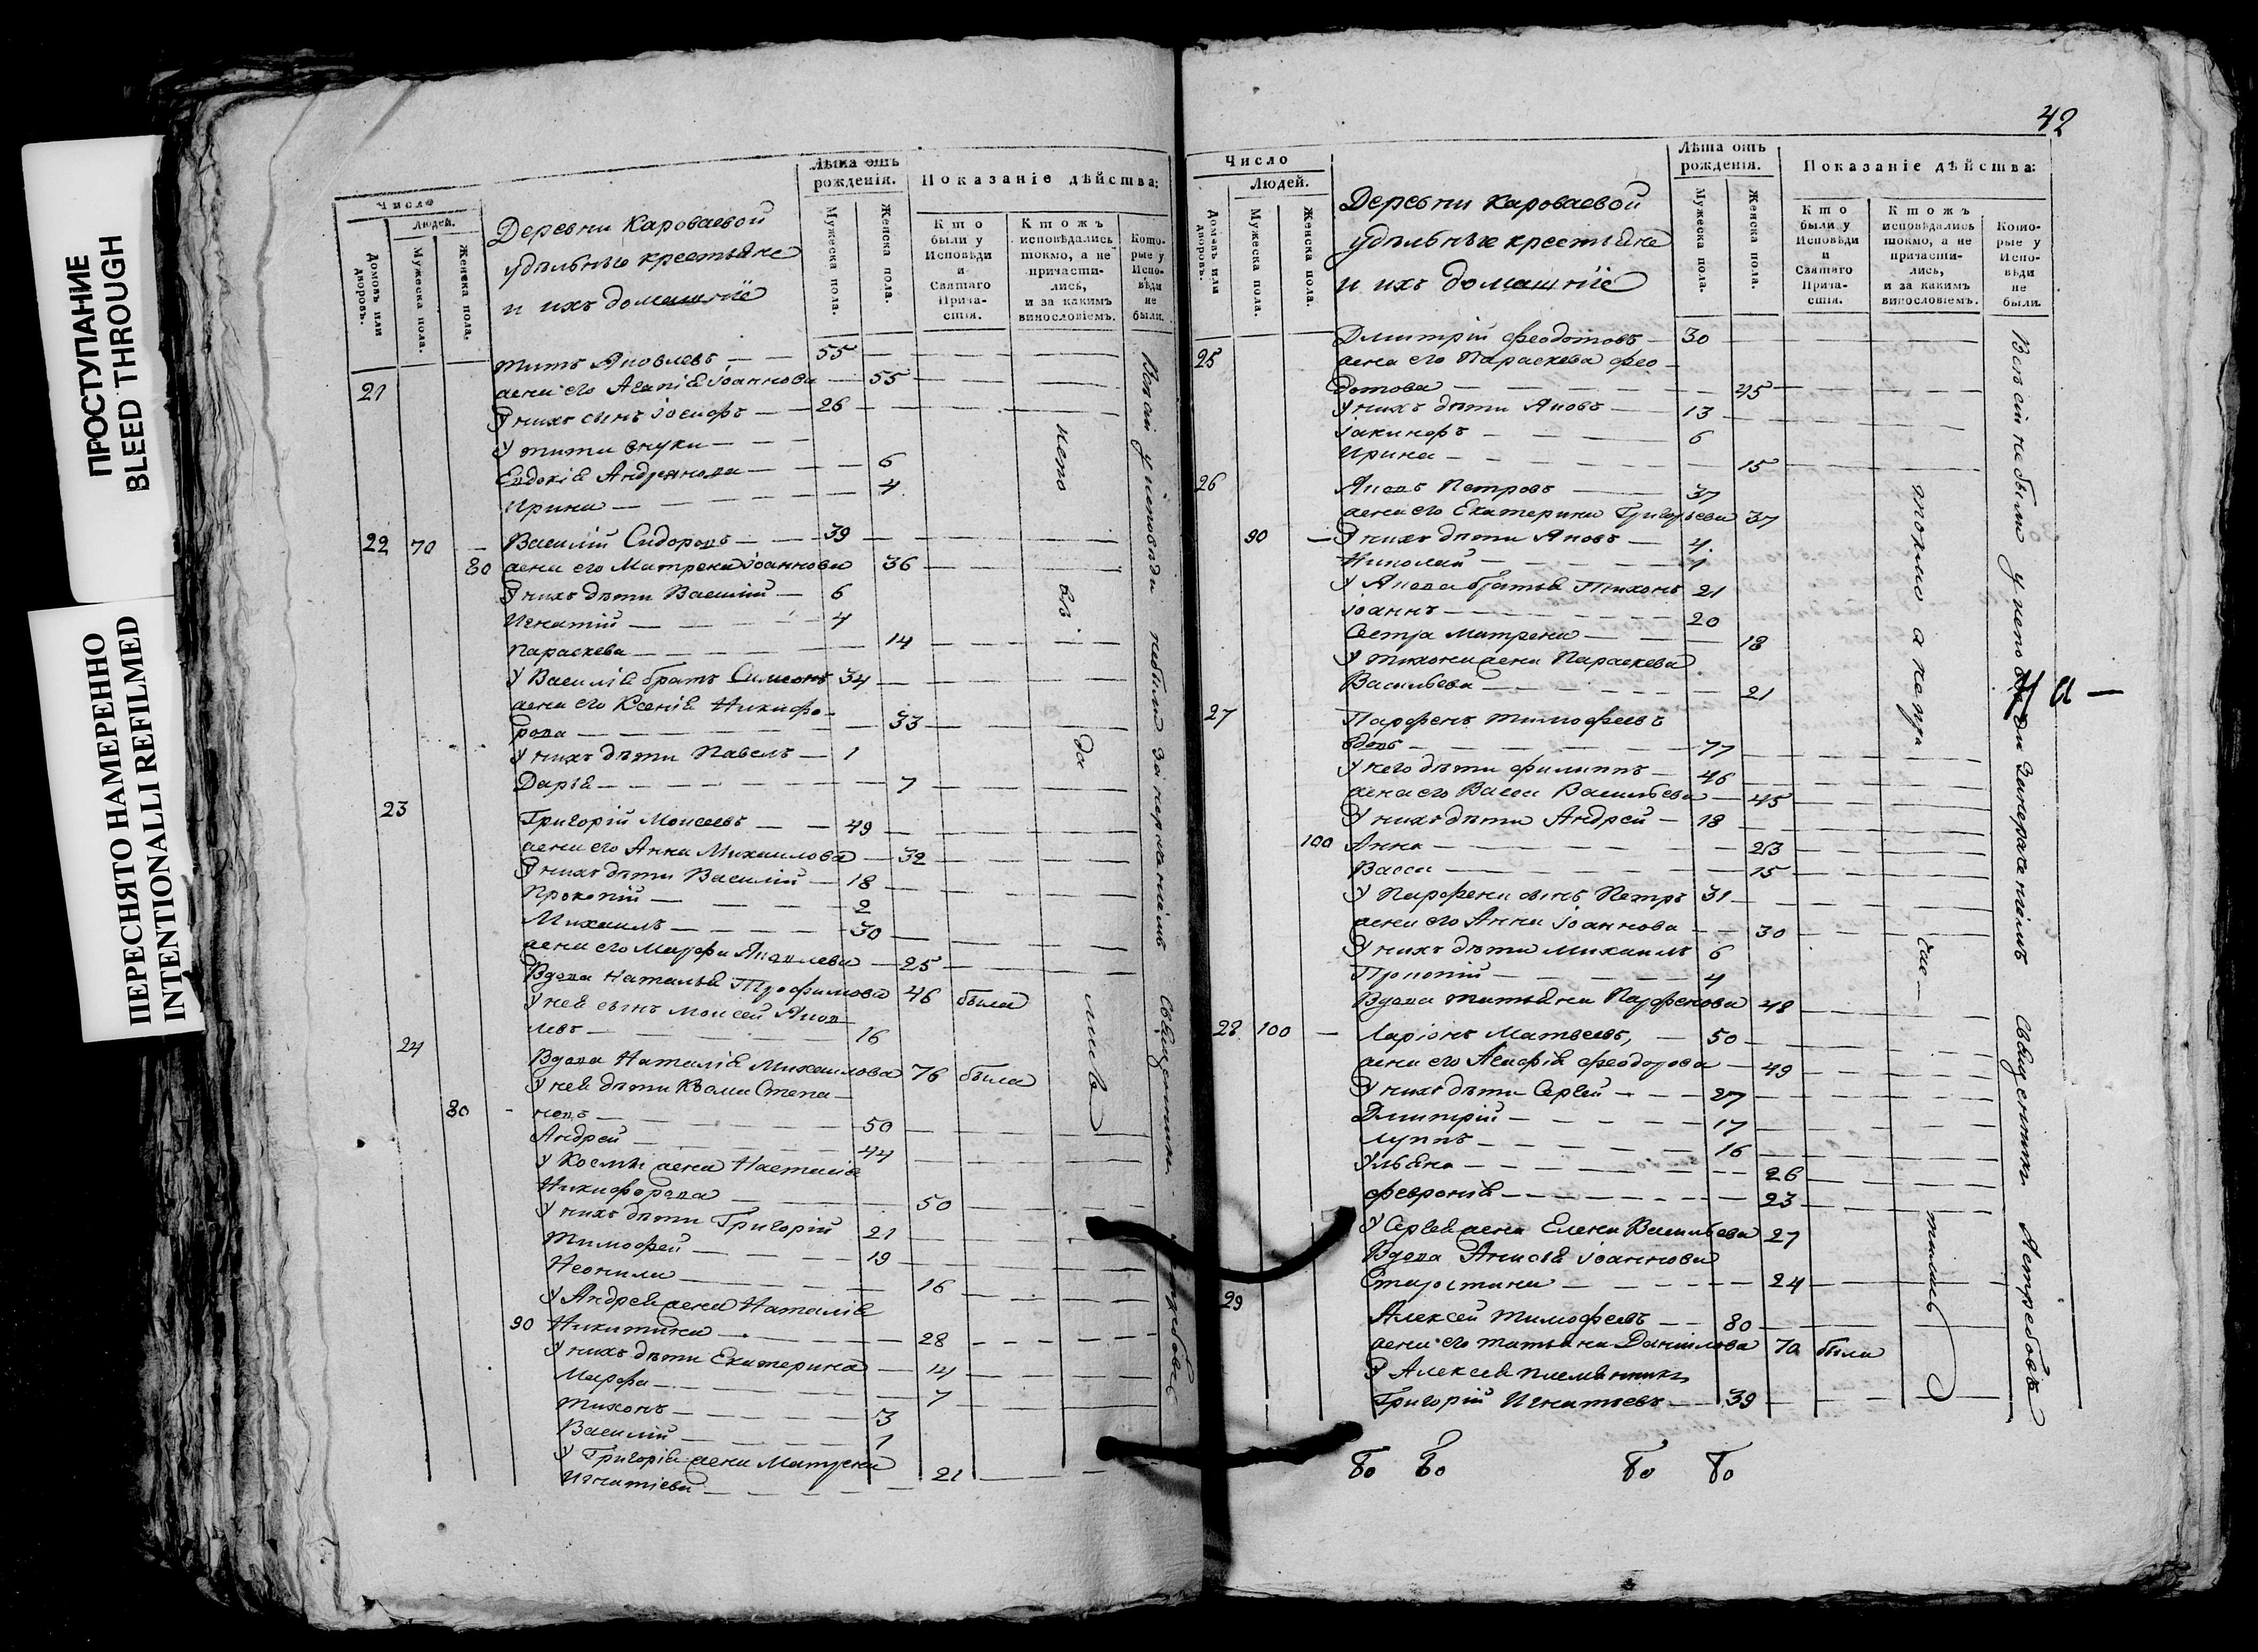 ПРОСТУПАНИЕ
BLEED THROUGH
ПЕРЕСНЯТО НАМЕРЕННО
INTENTIONALLI REFILMED
Число
Людей.
Домовъ или дворовъ.
Мужеска пола.
Женска пола.
Деревни Кароваевой
удѣльные крестьяне
и ихъ домашнïе
Лѣта отъ рожденія.
Мужеска пола.
Женска пола.
Показаніе дѣйства:
Кто были у Исповѣди и Святаго Причастія.
Ктожъ исповѣдались токмо, а не причастились, и за какимъ винословіемъ.
Которые у Исповѣди не были.
21 Титъ Яковлевъ 55
жена его Агапія Іоаннова 55
У нихъ сынъ Іосифъ 26
У Тита внуки
Евдокія Андреянова 6
Ирина 4
22 70 Василій Сидоровъ 39
80 жена его Матрена Іоаннова 36
У нихъ дѣти Василій 6
Игнатій 4
Параскева 14
У Василія братъ Симеонъ 34
жена его Ксенія Никифо-
рова 33
У нихъ дѣти Павелъ 1
Дарья 7
23 Григорій Моисеевъ 49
жена его Анна Михаилова 32
У нихъ дѣти Василій 18
Прокопій 2
Михаилъ 30
жена его Марфа Яковлева 25
Вдова Наталья Трофимова 46 была
У нея сынъ Моисей Яков
левъ 16
24 Вдова Наталія Михаилова 76 была
У нея дѣти Козма Степа-
80 новъ 50
Андрей 44
У Космы жена Настасія
Никифорова 50
У нихъ дѣти Григорій 21
Тимофей 19
Неонила 16
У Андрея жена Наталія
90 Никитина 28
У нихъ дѣти Екатерина 14
Марфа 7
Тихонъ 3
Василій 1
У Григорія жена Матрена
Игнатіева 21
Всѣ сіи у исповѣди небыли за нераченіемъ Священникъ
42
Число
Людей.
Домовъ или дворовъ.
Мужеска пола.
Женска пола.
Деревни Кароваевой
удѣльные крестьяне
и ихъ домашнïе
Лѣта отъ рожденія.
Мужеска пола.
Женска пола.
Показаніе дѣйства:
Кто были у Исповѣди и Святаго Причастія.
Ктожъ исповѣдались токмо, а не причастились, и за какимъ винословіемъ.
Которые у Исповѣди не были.
25 Дмитрій Феодотовъ 30
жена его Параскева Фео-
дотова 45
У нихъ дѣти Яковъ 13
Іакинфъ 6
Ирина 15
26 Яковъ Петровъ 37
жена его Екатерина Григорьева 37
90 У нихъ дѣти Яковъ 4
Николай 1
У Якова братья Тихонъ 21
Іоаннъ 20
Сестра Матрена 18
У Тихона жена Параскева
Васильева 21
27 Парфенъ Тимофеевъ
вдовъ 77
У него дѣти Филиппъ 46
жена его Васса Васильева 45
У нихъ дѣти Андрей 18
100 Анна 23
Васса 15
У Парфена сынъ Петръ 31
жена его Анна Іоаннова 30
У нихъ дѣти Михаилъ 6
Прокопій 4
Вдова Татьяна Парфенова 48
28 100 Ларіонъ Матвеевъ, 50
жена его Агафія Феодорова 49
У нихъ дѣти Сергей 27
Дмитрій 17
Луппъ 16
Ульяна 26
Февронія 23
У Сергея жена Елена Васильева 27
Вдова Анисья Іоаннова
Старостина 24
29 Алексей Тимофеевъ 80
жена его Татьяна Даніилова 70 была
У Алексея племянникъ
Григорій Игнатьевъ 39
Всѣ сіи не были у исповѣди за нераченіемъ Священникъ Ястребовъ